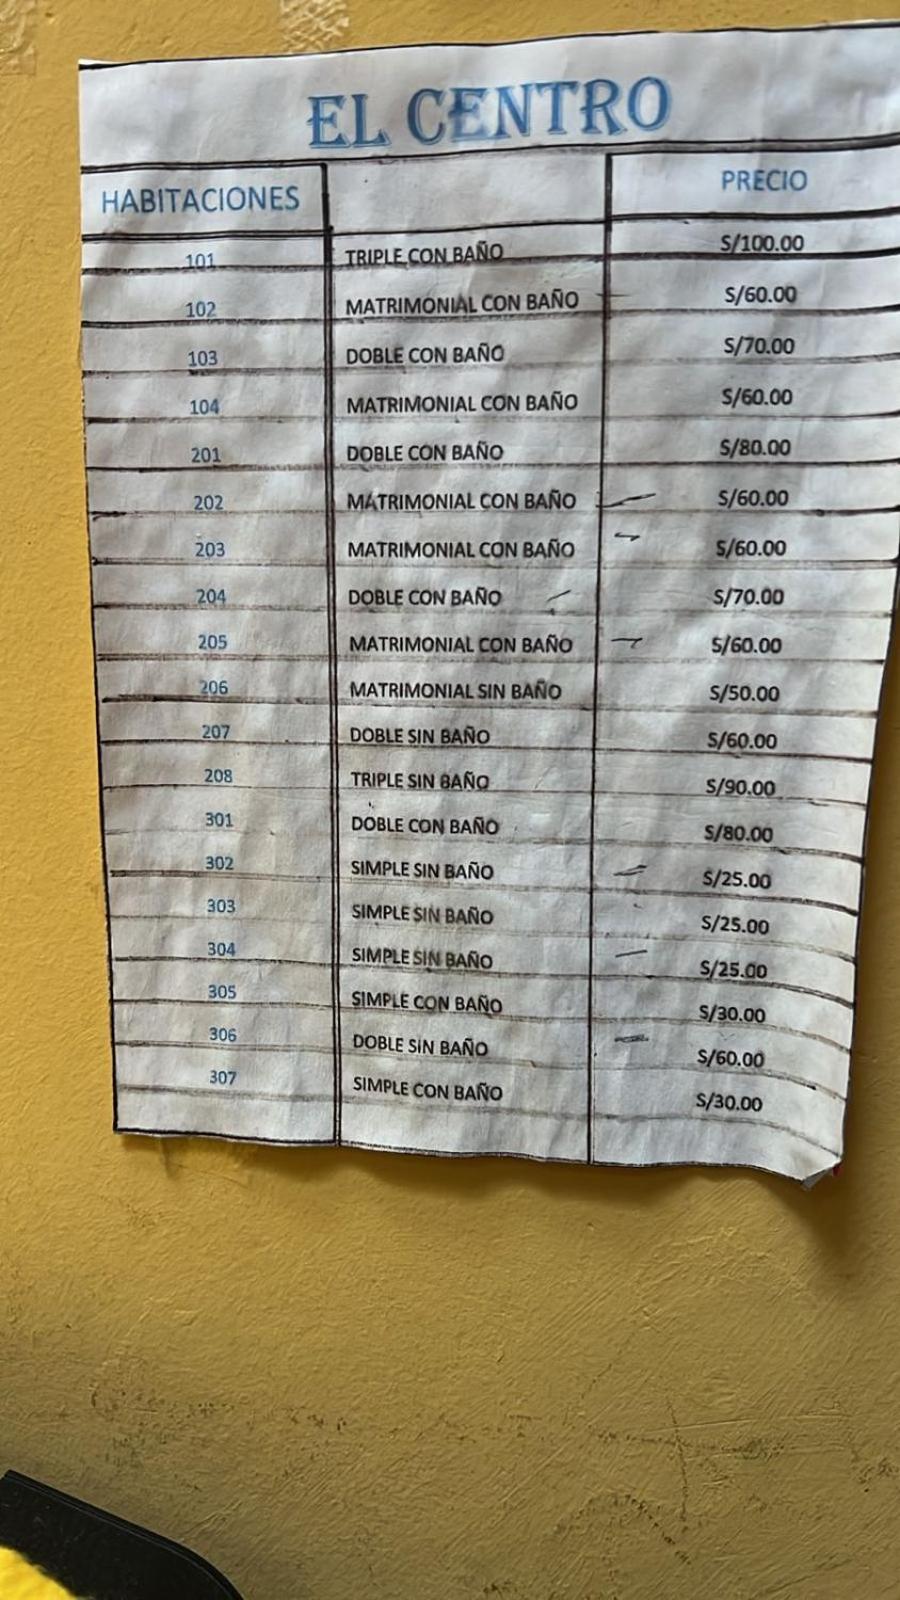 EL CENTRO
HABITACIONES PRECIO
101 TRIPLE CON BAÑO S/100.00
102 MATRIMONIAL CON BAÑO S/60.00
103 DOBLE CON BAÑO S/70.00
104 MATRIMONIAL CON BAÑO S/60.00
201 DOBLE CON BAÑO S/80.00
202 MATRIMONIAL CON BAÑO S/60.00
203 MATRIMONIAL CON BAÑO S/60.00
204 DOBLE CON BAÑO S/70.00
205 MATRIMONIAL CON BAÑO S/60.00
206 MATRIMONIAL SIN BAÑO S/50.00
207 DOBLE SIN BAÑO S/60.00
208 TRIPLE SIN BAÑO S/90.00
301 DOBLE CON BAÑO S/80.00
302 SIMPLE SIN BAÑO S/25.00
303 SIMPLE SIN BAÑO S/25.00
304 SIMPLE SIN BAÑO S/25.00
305 SIMPLE CON BAÑO S/30.00
306 DOBLE SIN BAÑO S/60.00
307 SIMPLE CON BAÑO S/30.00